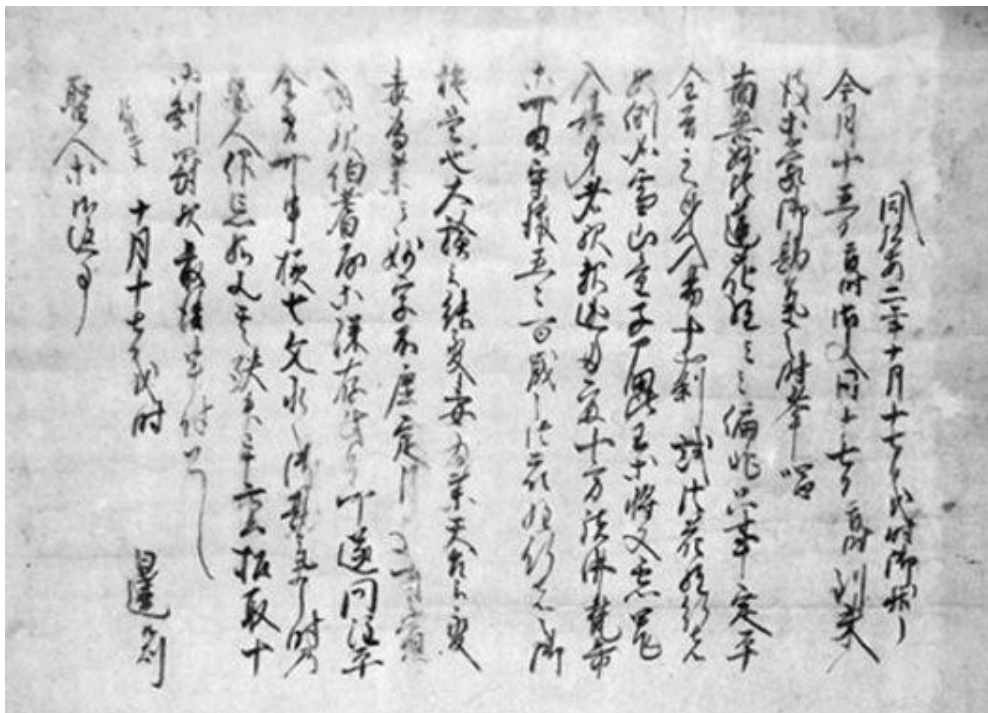 同弘安二年十月十七日戌時御状
今月十五日酉時御文同十七日酉時到来
彼等蒙御勘気之時奉唱
南無妙法蓮花経々々偏非只事定平
金吾之身入易十羅刹試法花経行者
歟例如雪山童子尸毘王等将又悪鬼
入其身者歟釈迦多宝十方諸仏梵帝
等可為守護五々百歳之法花経行者之御
誓是也大論云能変毒為薬天台云変
毒為薬云々妙字不虚定須臾有賞
罰歟伯耆房等深存此旨可遂問注平
金吾可申様去文永之御勘気之時乃
聖人仰忘給歟其殃未畢重招取十
羅刹罰歟最後申付
十月十七日戌時 日蓮
聖人等御返事